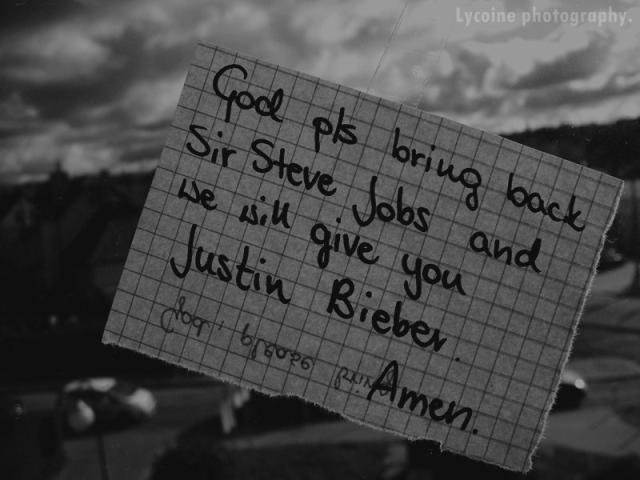 Lycoine photography.
God pls bring back
Sir Steve Jobs and
we will give you
Justin Bieber.
Amen.
God, please bring